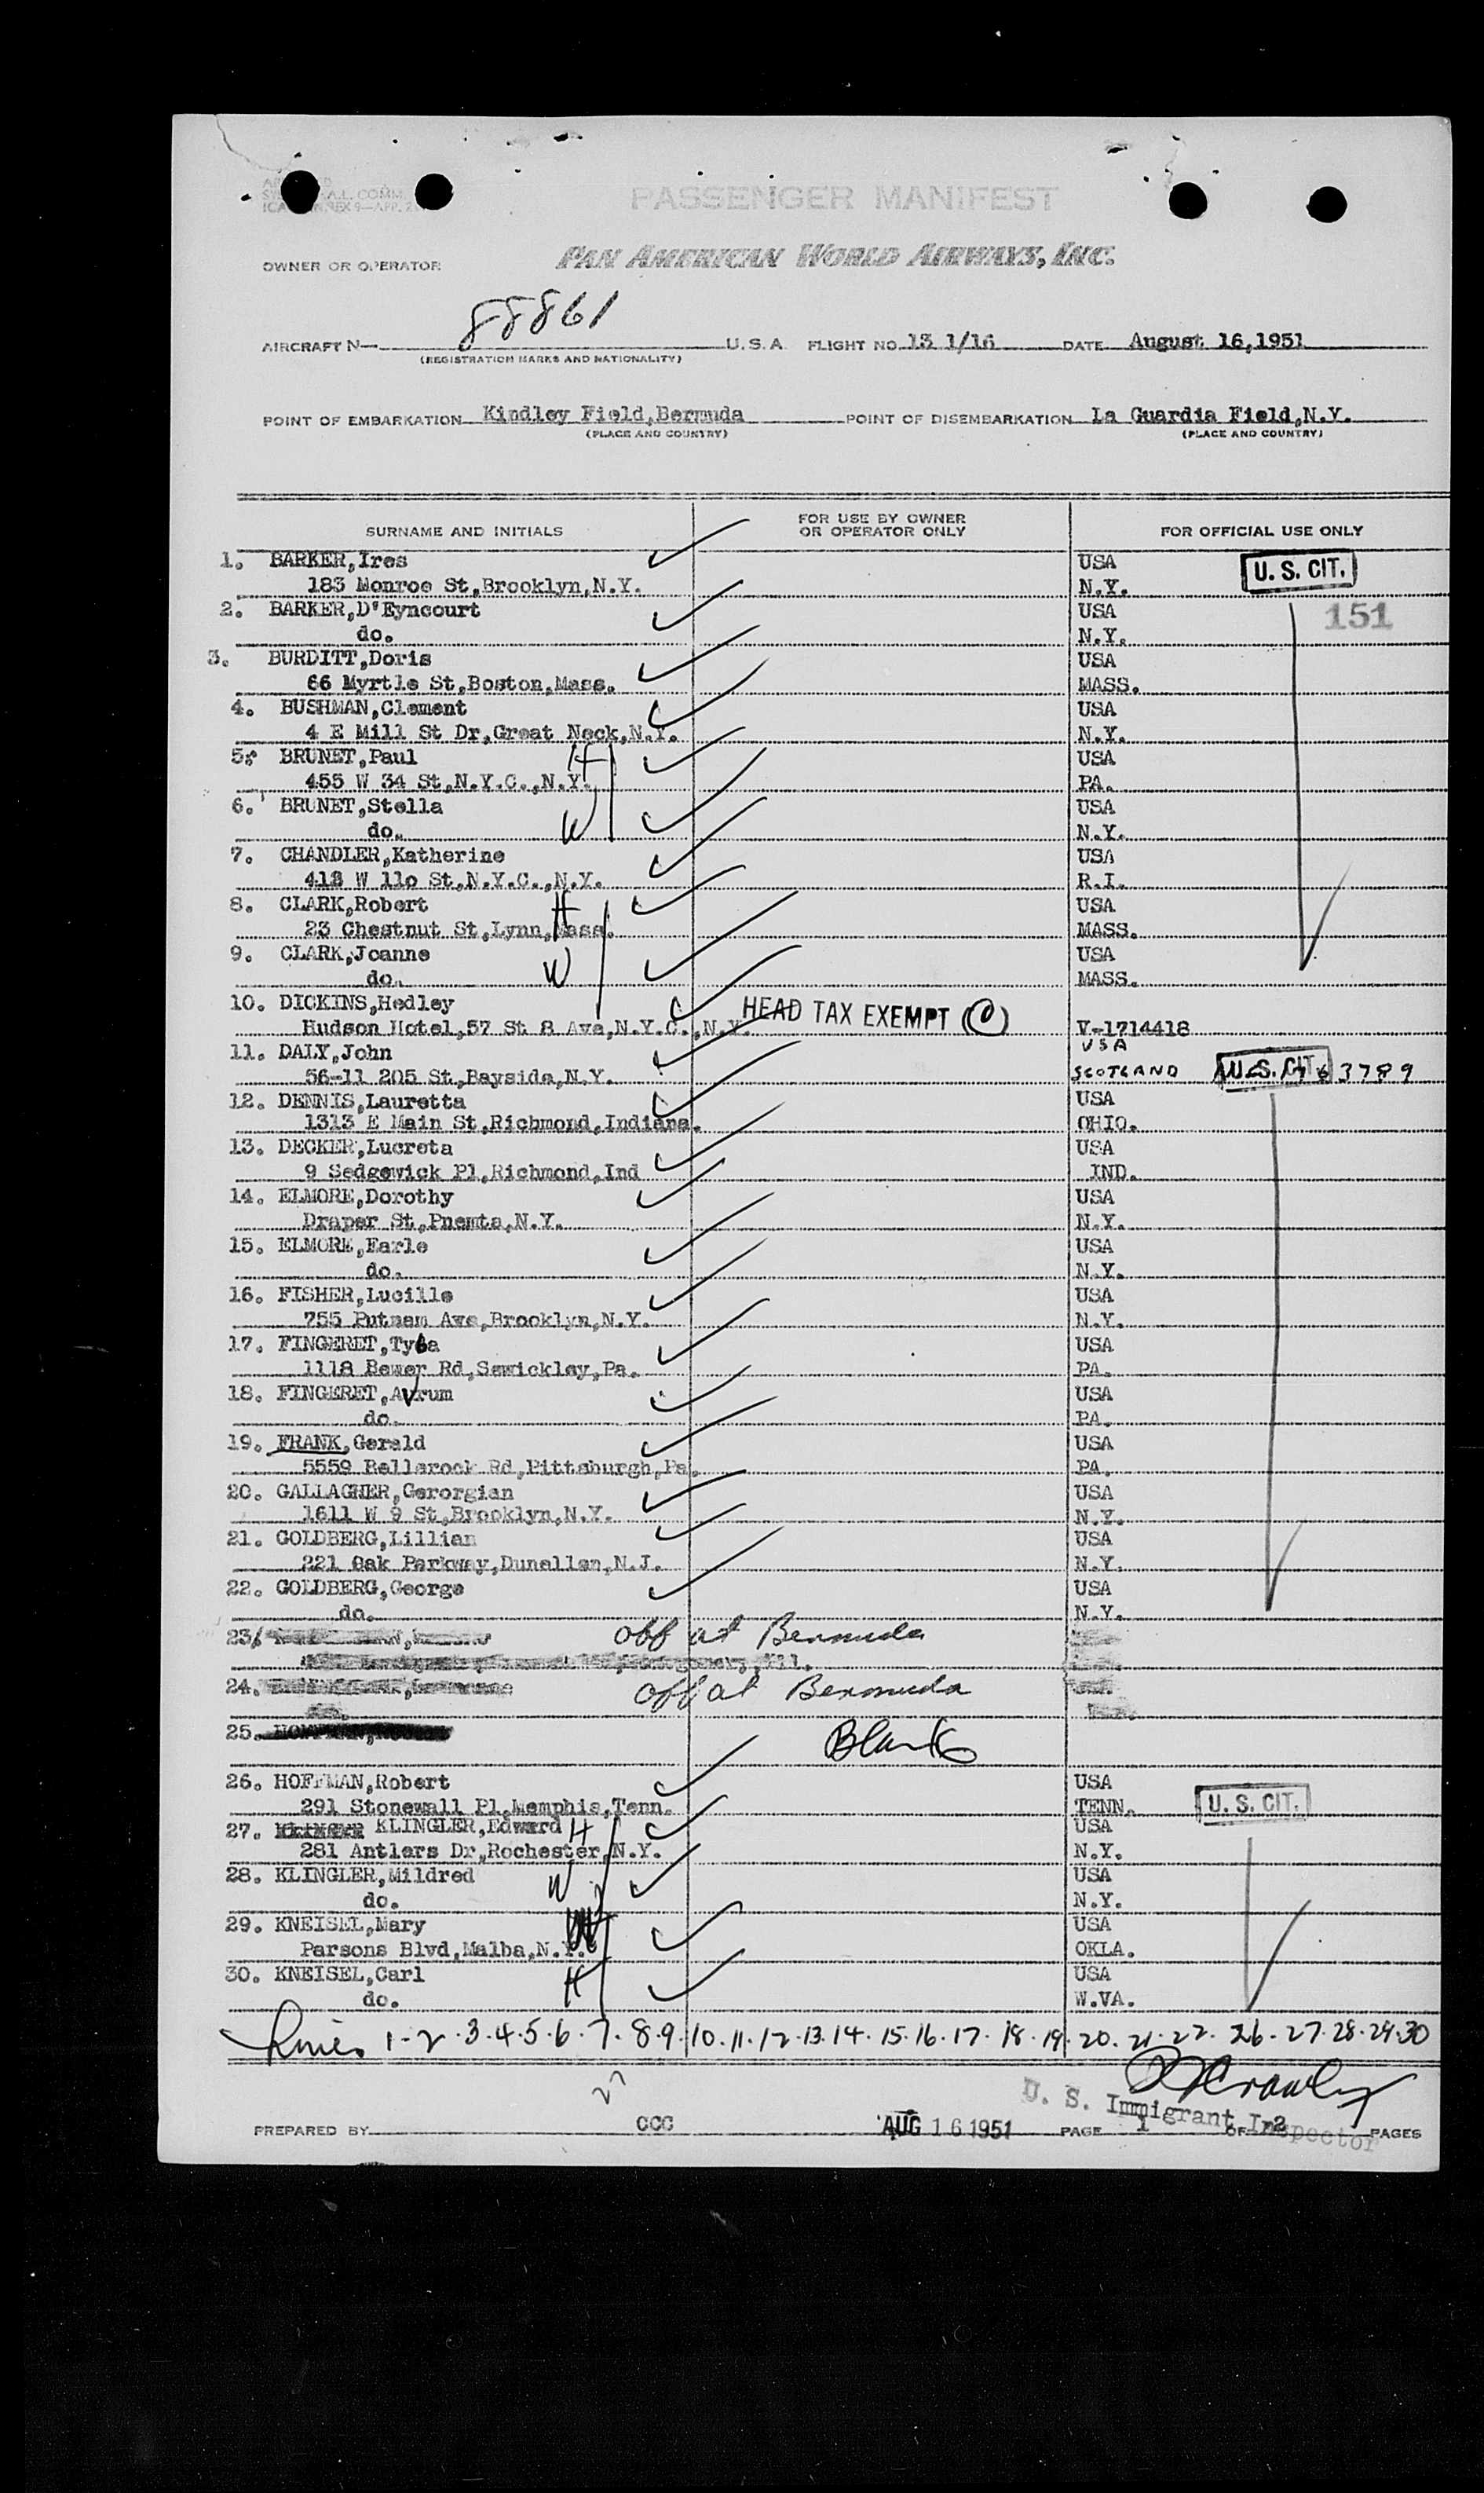 PASSENGER MANIFEST
OWNER OR OPERATOR PAN AMERICAN WORLD AIRWAYS, INC.
AIRCRAFT N— 88861 U.S.A. FLIGHT NO. 13 1/16 DATE August 16,1951
(REGISTRATION MARKS AND NATIONALITY)
POINT OF EMBARKATION Kindley Field,Bermuda POINT OF DISEMBARKATION La Guardia Field,N.Y.
(PLACE AND COUNTRY) (PLACE AND COUNTRY)
SURNAME AND INITIALS FOR USE BY OWNER OR OPERATOR ONLY FOR OFFICIAL USE ONLY
1. BARKER,Ires USA U. S. CIT.
183 Monroe St,Brooklyn,N.Y. N.Y.
2. BARKER,D'Eyncourt USA 151
do. N.Y.
3. BURDITT,Doris USA
66 Myrtle St,Boston,Mass. MASS.
4. BUSHMAN,Clement USA
4 E Mill St Dr,Great Neck,N.Y. N.Y.
5. BRUNET,Paul H USA
455 W 34 St,N.Y.C.,N.Y. PA.
6. BRUNET,Stella USA
do. W N.Y.
7. CHANDLER,Katherine USA
418 W 11o St,N.Y.C.,N.Y. R.I.
8. CLARK,Robert H USA
23 Chestnut St,Lynn,Mass. MASS.
9. CLARK,Joanne W USA
do. MASS.
10. DICKINS,Hedley HEAD TAX EXEMPT
Hudson Hotel,57 St 8 Ave,N.Y.C.,N.Y. V-1714418
11. DALY,John USA
56-11 205 St,Bayside,N.Y. SCOTLAND U. S. CIT. 3789
12. DENNIS,Lauretta USA
1313 E Main St,Richmond,Indiana. OHIO.
13. DECKER,Lucreta USA
9 Sedgewick Pl,Richmond,Ind IND.
14. ELMORE,Dorothy USA
Draper St,Pnemta,N.Y. N.Y.
15. ELMORE,Earle USA
do. N.Y.
16. FISHER,Lucille USA
755 Putnam Ave,Brooklyn,N.Y. N.Y.
17. FINGERET,Tyba USA
1118 Bewer Rd,Sewickley,Pa. PA.
18. FINGERET,Avrum USA
do. PA.
19. FRANK,Gerald USA
5559 Bellerock Rd,Pittsburgh,Pa. PA.
20. GALLAGHER,Gerorgian USA
1611 W 9 St,Brooklyn,N.Y. N.Y.
21. GOLDBERG,Lillian USA
221 Oak Parkway,Dunellen,N.J. N.Y.
22. GOLDBERG,George USA
do. N.Y.
23. off at Bermuda
24. off at Bermuda
25. Blank
26. HOFFMAN,Robert USA
291 Stonewall Pl,Memphis,Tenn. TENN. U. S. CIT.
27. KLINGLER,Edward H USA
281 Antlers Dr,Rochester,N.Y. N.Y.
28. KLINGLER,Mildred W USA
do. N.Y.
29. KNEISEL,Mary USA
Parsons Blvd,Malba,N.Y. OKLA.
30. KNEISEL,Carl H USA
do. W.VA.
Lines 1-2.3.4.5.6.7.8.9.10.11.12.13.14.15.16.17.18.19.20.21.22.26.27.28.29.30
27
U. S. Immigrant Inspector
PREPARED BY CCC AUG 16 1951 PAGE 1 OF 2 PAGES